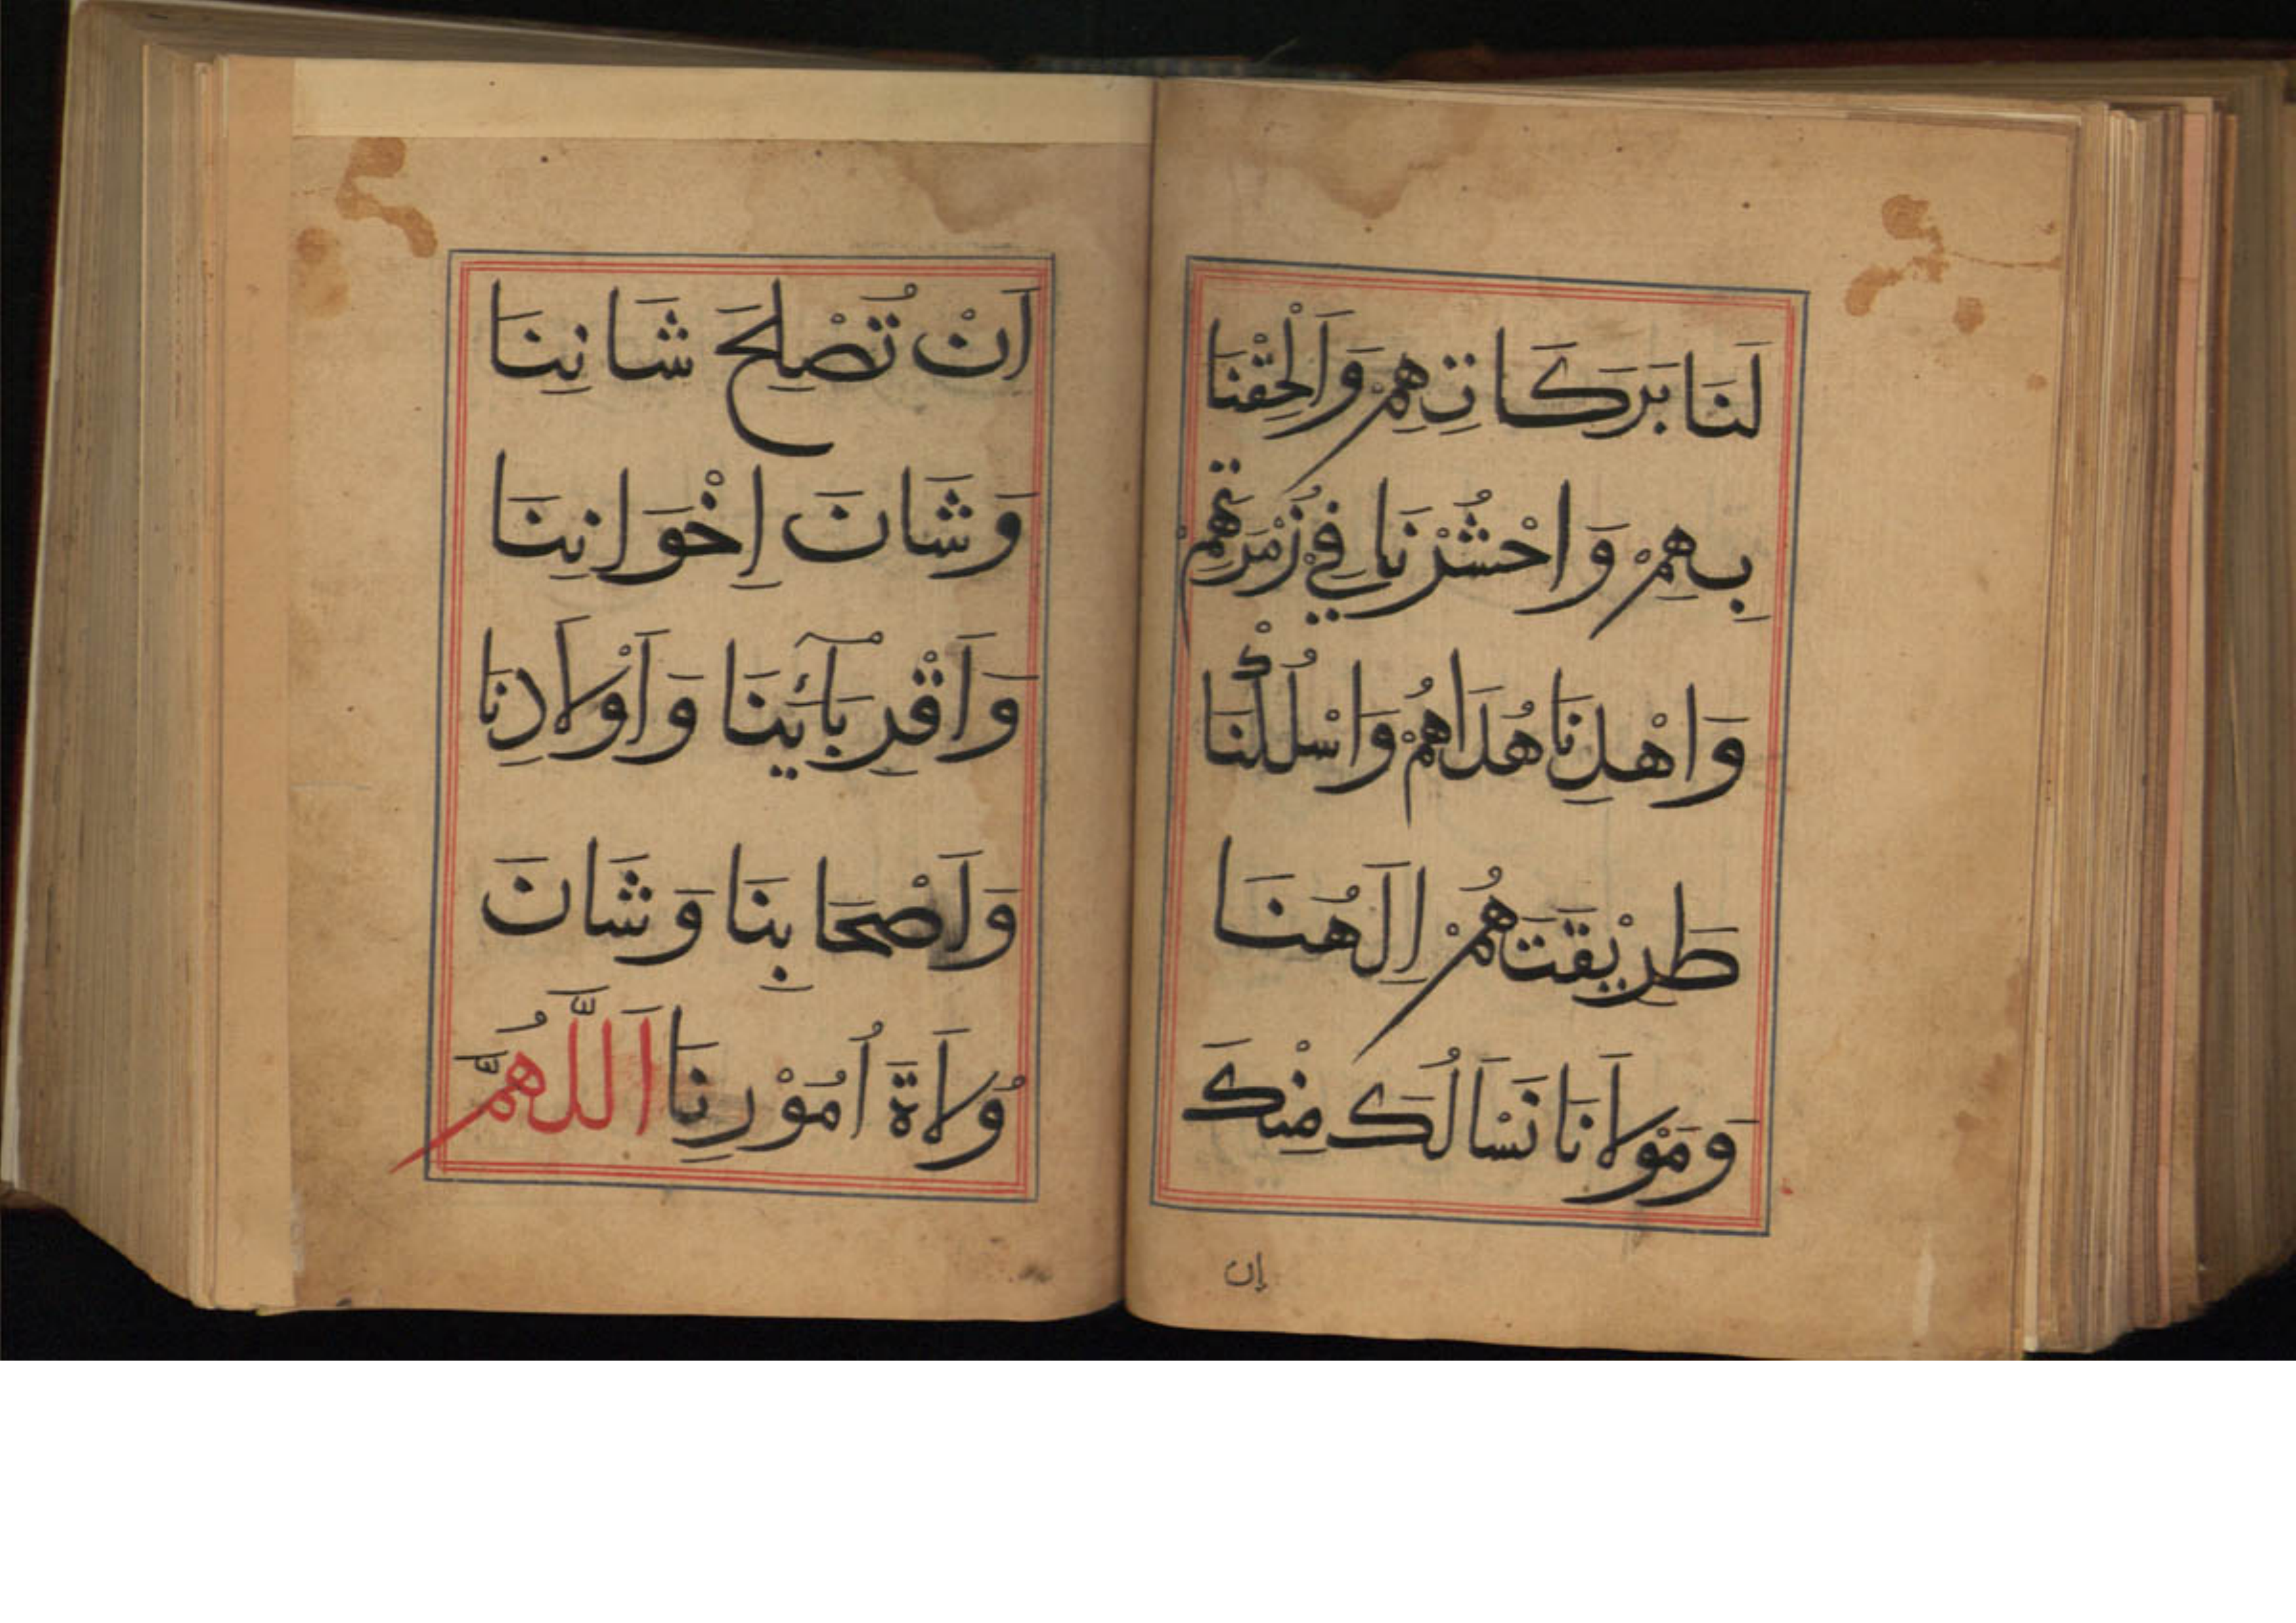 لَنَا بَرَكَاتِهِمْ وَاَلْحِقْنَا
بِهِمْ وَاحْشُرْنَا فِي زُمْرَتِهِمْ
وَاهْدِنَا هُدَاهُمْ وَاسْلُكْ لَنَا
طَرِيْقَتَهُمْ اِلَهُنَا
وَمَوْلَانَا نَسْاَلُكَ مِنْكَ
إن
اَنْ تُصْلِحَ شَانِنَا
وَشَانَ اِخْوَانِنَا
وَاَقْرِبَآئِينَا وَاَوْلَادِنَا
وَاَصْحَابِنَا وَشَانَ
وُلَاةَ اُمُوْرِنَا اَللَّهُمَّ